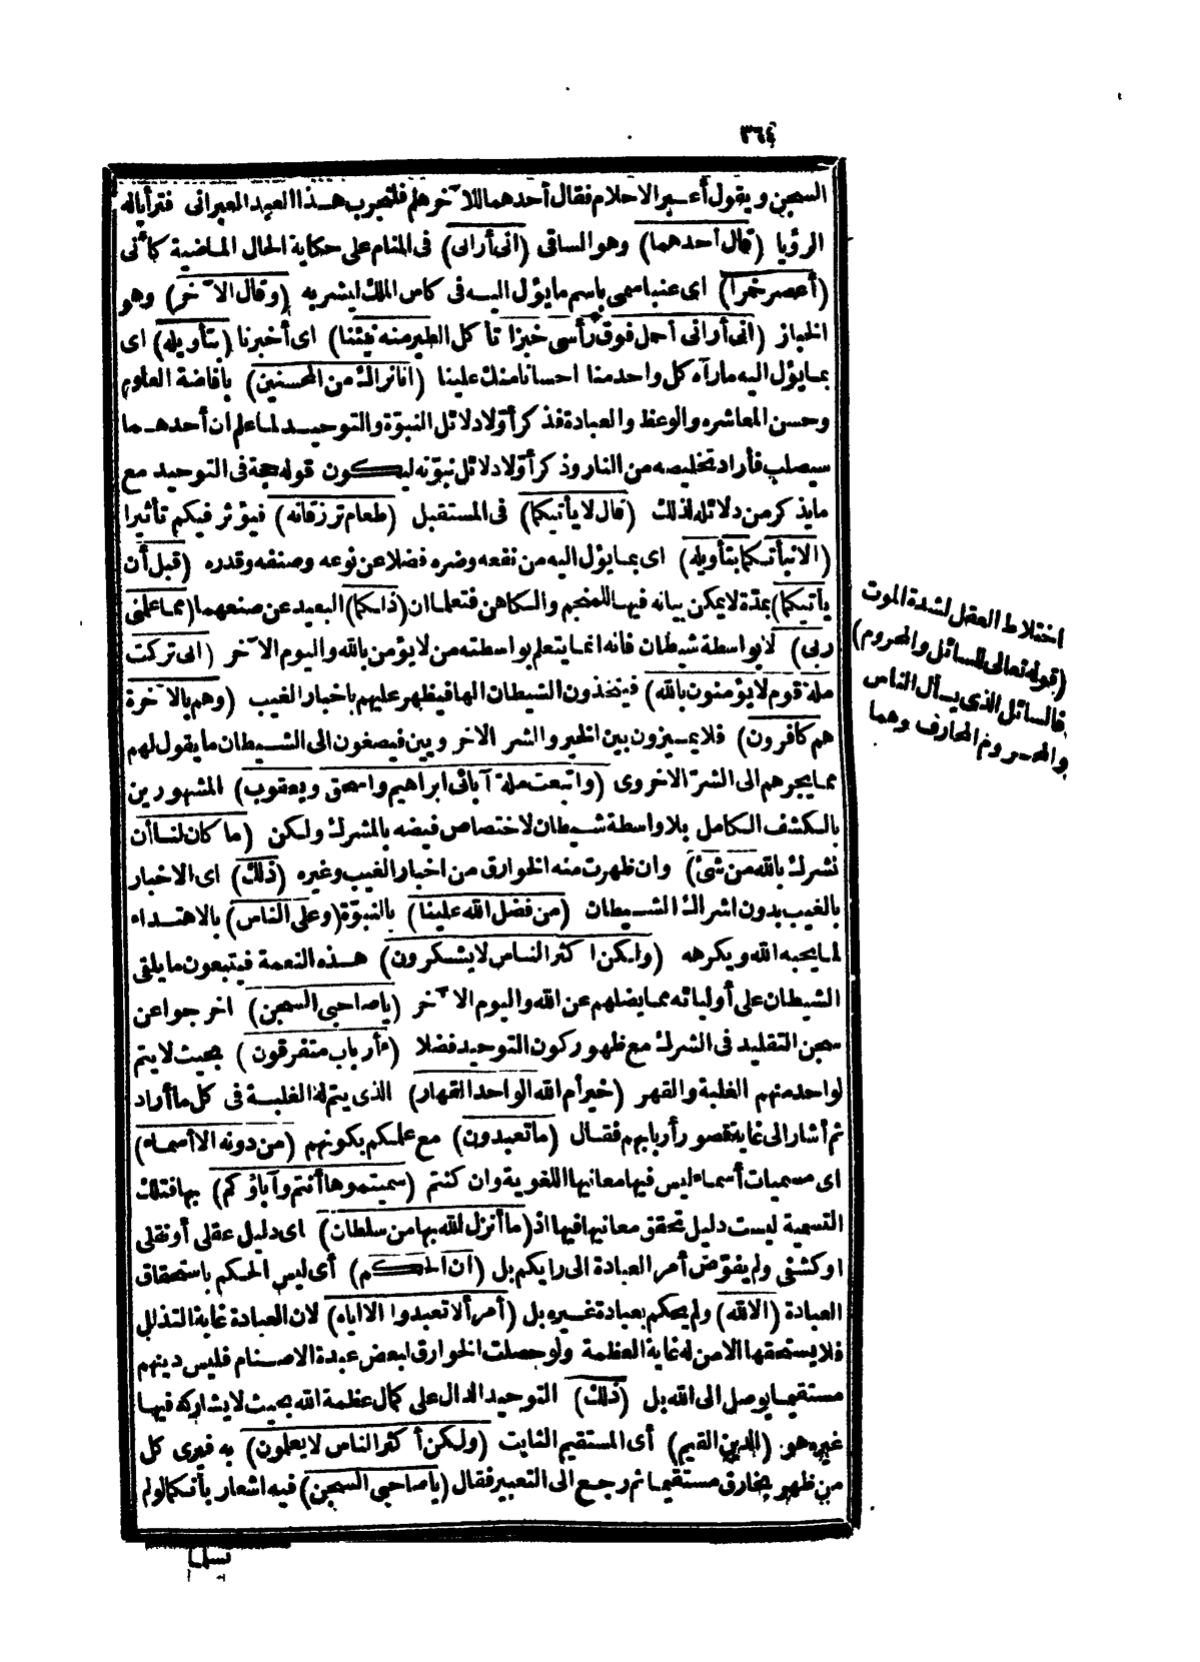 ٣٦٤
السجن ويقول أعبر الاحلام فقال أحدهما للآخر هلم فلنجرب هذا العبد العبرانى فتراآ له
الرؤيا (قال أحدهما) وهو الساقى (انى أرانى) فى المنام على حكاية الحال الماضية كأنى
(أعصر خمرا) اى عنبا سمى باسم ما يؤل اليه فى كاس الملك ليشربه (وقال الآخر) وهو
الخباز (انى أرانى أحمل فوق رأسى خبزا تأكل الطير منه نبئنا) اى أخبرنا (بتأويله) اى
بما يؤل اليه ما رآه كل واحد منا احسانا منك علينا (انا نراك من المحسنين) بافاضة العلوم
وحسن المعاشره والوعظ والعبادة فذكر أوّلا دلائل النبوّة والتوحيد لما علم ان أحدهما
سيصلب فأراد تخليصه من النار وذكر أوّلا دلائل نبوّته ليكون قوله حجة فى التوحيد مع
ما يذكر من دلائله لذلك (قال لا يأتيكما) فى المستقبل (طعام ترزقانه) فيؤثر فيكم تأثيرا
(الا نبأتكما بتأويله) اى بما يؤل اليه من نفعه وضره فضلا عن نوعه وصنفه وقدره (قبل أن
يأتيكما) بمدّة لا يمكن بيانه فيها للمنجم والكاهن فتعلما ان (ذلكما) البعيد عن صنعهما (مما علمنى
ربى) لا بواسطة شيطان فانه انما يتعلم بواسطته من لا يؤمن بالله واليوم الآخر (انى تركت
ملة قوم لا يؤمنون بالله) فيتخذون الشيطان الها فيظهر عليهم باخبار الغيب (وهم بالآخرة
هم كافرون) فلا يميزون بين الخير والشر الاخرويين فيصغون الى الشيطان ما يقول لهم
مما يجرهم الى الشرّ الاخروى (واتبعت ملة آبائى ابراهيم واسحق ويعقوب) المشهورين
بالكشف الكامل بلا واسطة شيطان لاختصاص فيضه بالمشرك ولكن (ما كان لنا أن
نشرك بالله من شئ) وان ظهرت منه الخوارق من اخبار الغيب وغيره (ذلك) اى الاخبار
بالغيب بدون اشراك الشيطان (من فضل الله علينا) بالنبوّة (وعلى الناس) بالاهتداء
لما يحبه الله ويكرهه (ولكن اكثر الناس لا يشكرون) هذه النعمة فيتبعون ما يلقى
الشيطان على أوليائه مما يضلهم عن الله واليوم الآخر (يا صاحبى السجن) اخرجوا عن
سجن التقليد فى الشرك مع ظهور كون التوحيد فضلا (ءأرباب متفرقون) بحيث لا يتم
لواحد منهم الغلبة والقهر (خير أم الله الواحد القهار) الذى يتم له الغلبة فى كل ما أراد
ثم أشار الى غاية قصور أربابهم فقال (ما تعبدون) مع علمكم بكونهم (من دونه الا أسماء)
اى مسميات أسماء ليس فيها معانيها اللغوية وان كنتم (سميتموها أنتم وآباؤكم) بها فتلك
التسمية ليست دليل تحقق معانيها فيها اذ (ما أنزل الله بها من سلطان) اى دليل عقلى أو نقلى
او كشفى ولم يفوّض أمر العبادة الى رايكم بل (ان الحكم) أى ليس الحكم باستحقاق
العبادة (الا لله) ولم يحكم بعبادة غيره بل (أمر ألا تعبدوا الا اياه) لان العبادة غاية التذلل
فلا يستحقها الا من له غاية العظمة ولو حصلت الخوارق لبعض عبدة الاصنام فليس دينهم
مستقيما يوصل الى الله بل (ذلك) التوحيد الدال على كمال عظمة الله بحيث لا يشاركه فيها
غيره هو (الدين القيم) أى المستقيم الثابت (ولكن أكثر الناس لا يعلمون) به فيرى كل
من ظهر بخارق مستقيما ثم رجع الى التعبير فقال (يا صاحبى السجن) فيه اشعار بأنكما لولم
اختلاط العقل لشدة الموت
(قوله تعالى للسائل والمحروم)
فالسائل الذى يسأل الناس
والمحروم المحارف وهما